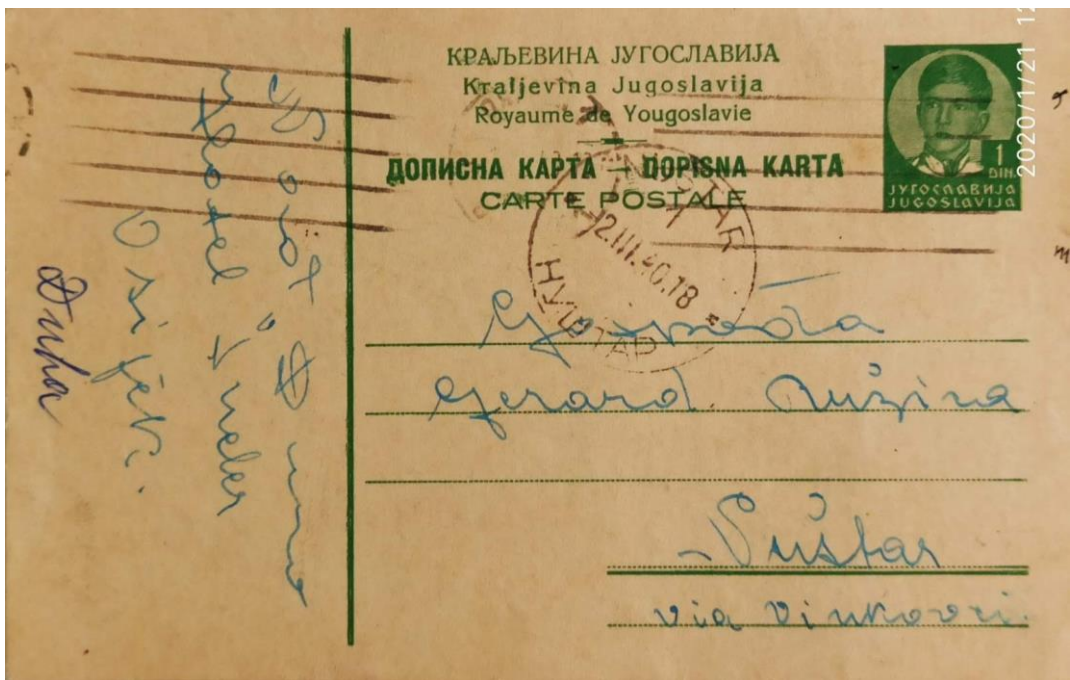 КРАЉЕВИНА ЈУГОСЛАВИЈА
Kraljevina Jugoslavija
Royaume de Yougoslavie
ДОПИСНА КАРТА — DOPISNA KARTA
CARTE POSTALE
1
DIN.
ЈУГОСЛАВИЈА
JUGOSLAVIJA
NUŠTAR
12.III.40.18
НУШТАР
Gospođa
Gerard Ružina
Nuštar
via Vinkovci
Hotel
Osijek.
2020/1/21 12